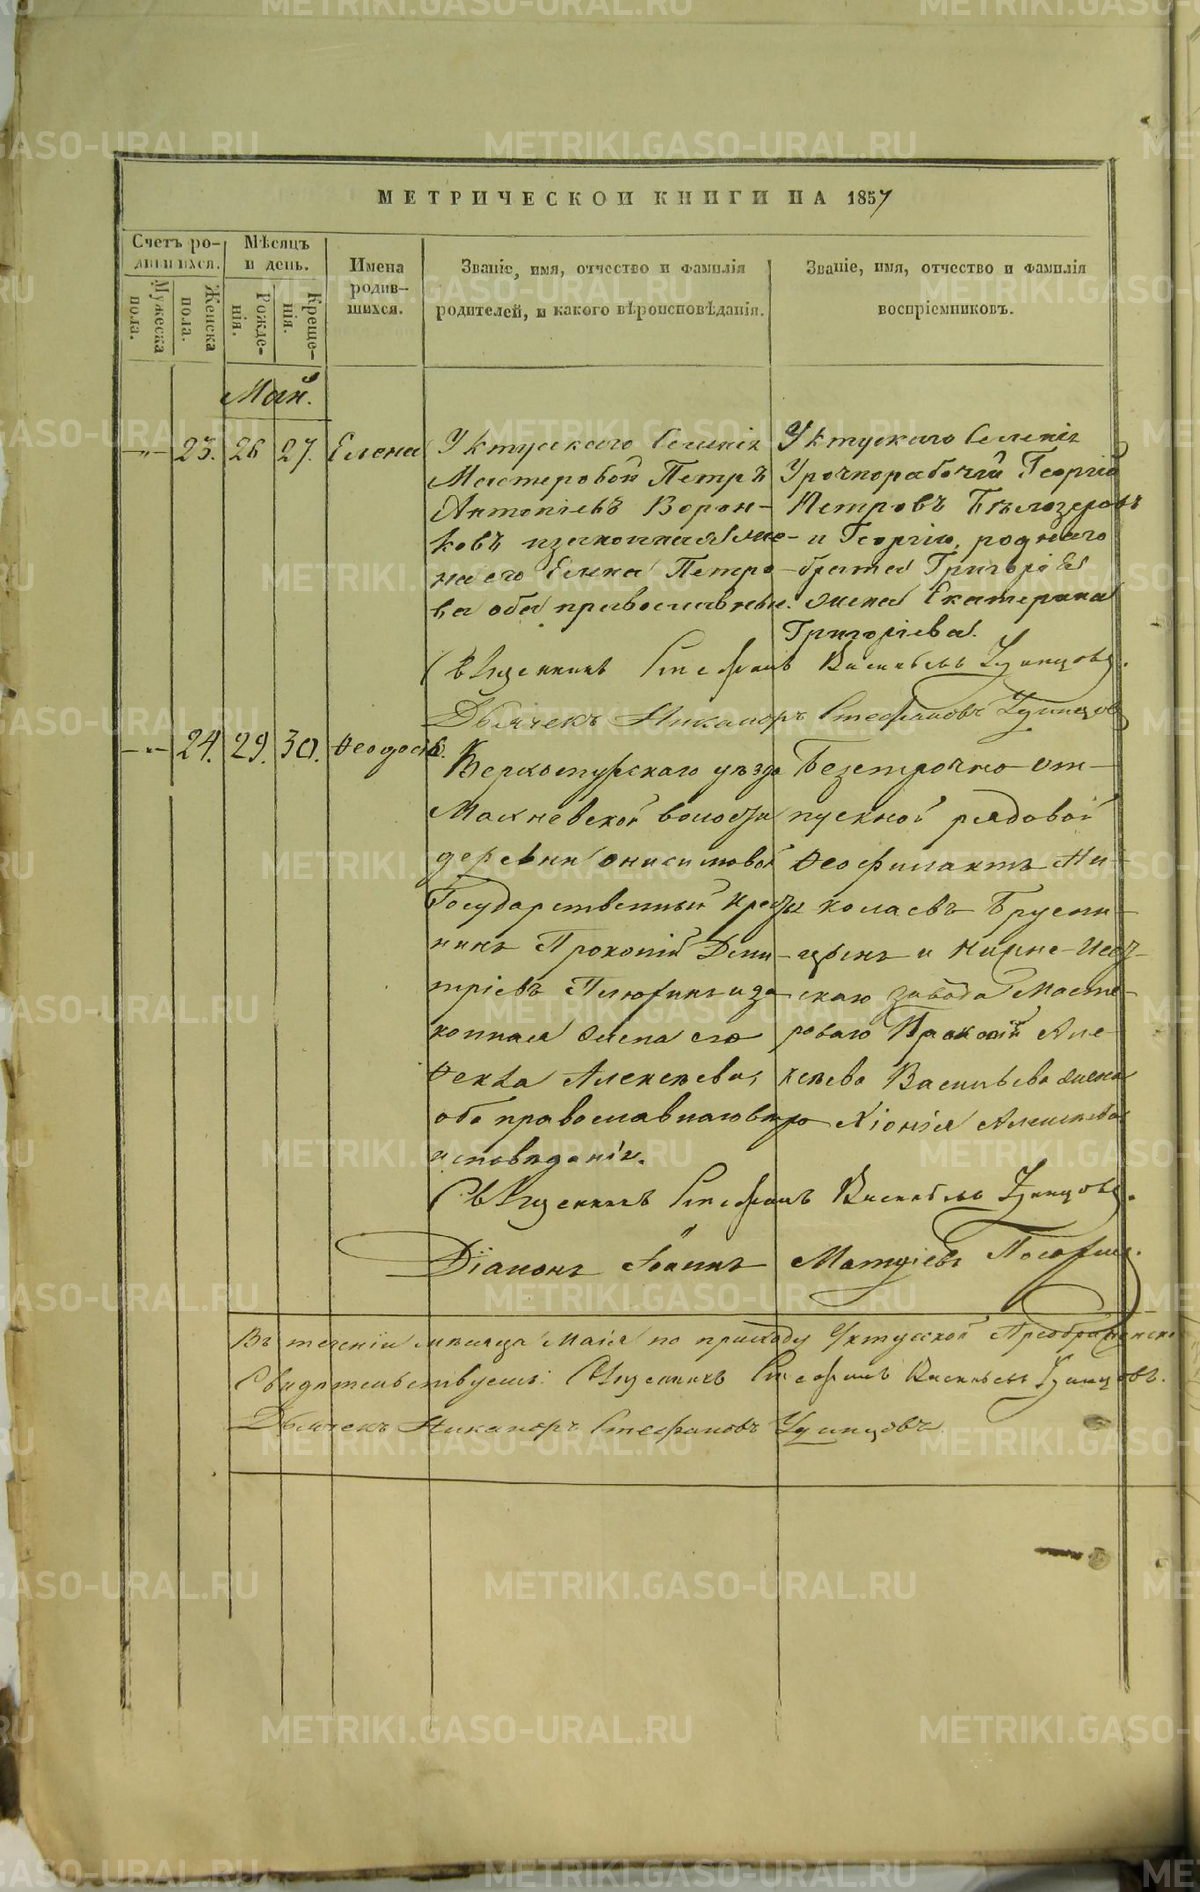 МЕТРИЧЕСКОЙ КНИГИ НА 1857
Счетъ родившихся.
Мѣсяцъ и день.
Имена родившихся.
Званіе, имя, отчество и фамилія родителей, и какого вѣроисповѣданія.
Званіе, имя, отчество и фамилія воспріемниковъ.
Мужеска пола.
Женска пола.
Рожденія.
Крещенія.
Май.
23. 26 27. Елена
Уктусскаго Селенія
Мастеровой Петръ
Антоніевъ Ворон-
ковъ и законная жѣ-
на его Елена Петро-
ва оба православные.
Уктускаго Селенія
Урочнорабочій Георгій
Петровъ Бѣлозеровъ
и Георгія, роднаго
брата Григорія
жена Екатерина
Григоріева.
Священникъ Стефанъ Васильевъ Удинцовъ.
Дьячекъ Никаноръ Стефановъ Удинцовъ
24. 29. 30. Ѳеодосія.
Верхотурскаго уѣзда
Махневской волости
деревни Анисимовой
Государственный Кресть
нинъ Прокопій Дими-
тріевъ и за-
конная жена его
Ѳекла Алексѣева,
оба православнаго вѣро
исповѣданія.
Безсрочно-от-
пускной рядовой
Ѳеофилактъ Ни-
колаевъ Брусни-
цынъ и Нижне-Исет-
скаго завода Масте-
роваго Але-
ксѣева Васильева жена
Хіонія Алексѣева
Священникъ Стефанъ Васильевъ Удинцовъ.
Діаконъ Іоаннъ
Въ теченіи мѣсяца Маія по приходу Уктусской Преображенско
Свидѣтельствуемъ: Священникъ Стефанъ Васильевъ Удинцовъ.
Дьячекъ Никаноръ Стефановъ Удинцовъ
METRIKI.GASO-URAL.RU